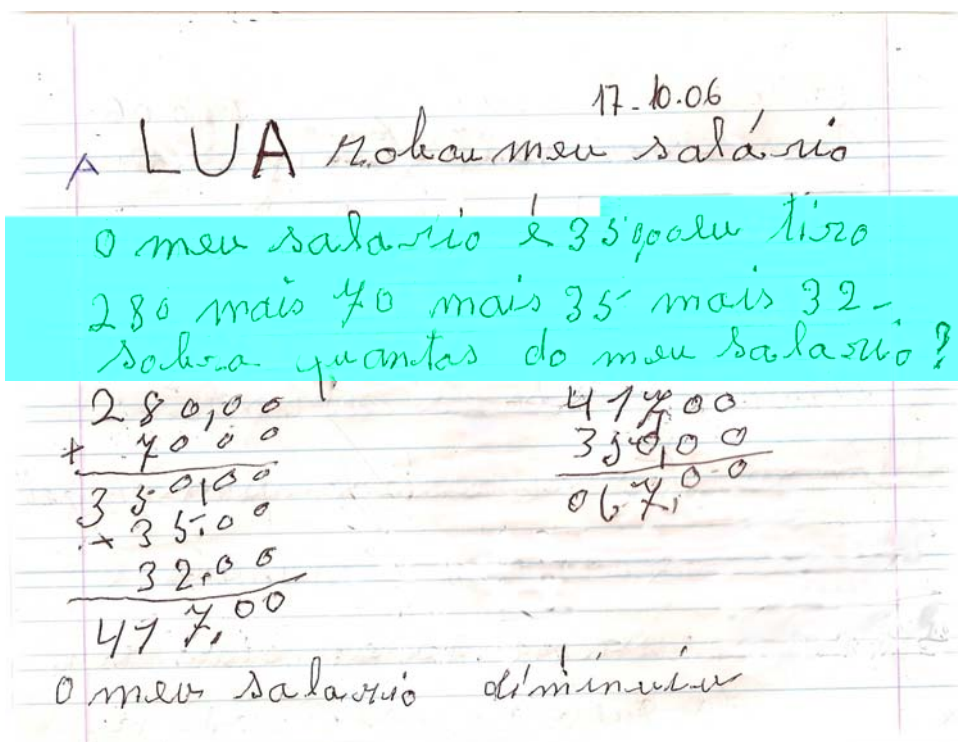 17.10.06
A LUA robou meu salário
o meu salario é 35000 eu tiro
280 mais 70 mais 35 mais 32-
sobra quantas do meu salario?
280,00
+ 70 00
350,00
+ 35,00
32,00
417,00
417,00
350,00
067,00
O meu salario diminuiu